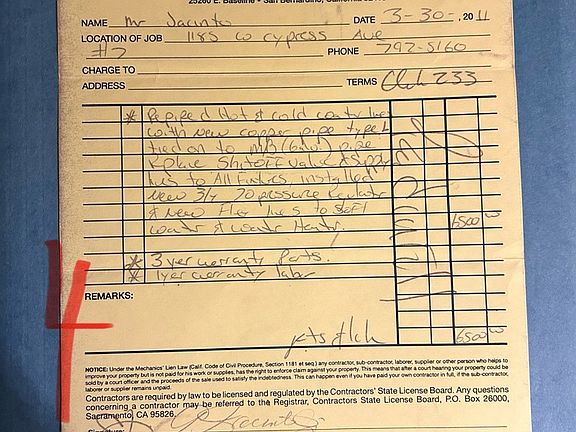 25260 E. Baseline • San Bernardino, California
NAME Mr Jacinto DATE 3-30-, 2011
LOCATION OF JOB 1185 W cypress Ave
#7 PHONE 792-5160
CHARGE TO
ADDRESS TERMS Chk 233
* Repiped Hot & cold water lines
with New copper pipe type L
tied on to pipe
Shutoff valve & Supply
lines to All Fixtures, installed
New 3/4 70 pressure Regulator
& New Flex lines to soft
water & water Heater. 6500
* 3 yer warranty Parts.
* 1 yer warranty labor
REMARKS:
6500
NOTICE: Under the Mechanics' Lien Law (Calif. Code of Civil Procedure, Section 1181 et seq.) any contractor, sub-contractor, laborer, supplier or other person who helps to
improve your property but is not paid for his work or supplies, has the right to enforce claim against your property. This means that after a court hearing your property could be
sold by a court officer and the proceeds of the sale used to satisfy the indebtedness. This can happen even if you have paid your own contractor in full, if the sub-contractor,
laborer or supplier remains unpaid.
Contractors are required by law to be licensed and regulated by the Contractors' State License Board. Any questions
concerning a contractor may be referred to the Registrar, Contractors State License Board, P.O. Box 26000,
Sacramento, CA 95826.